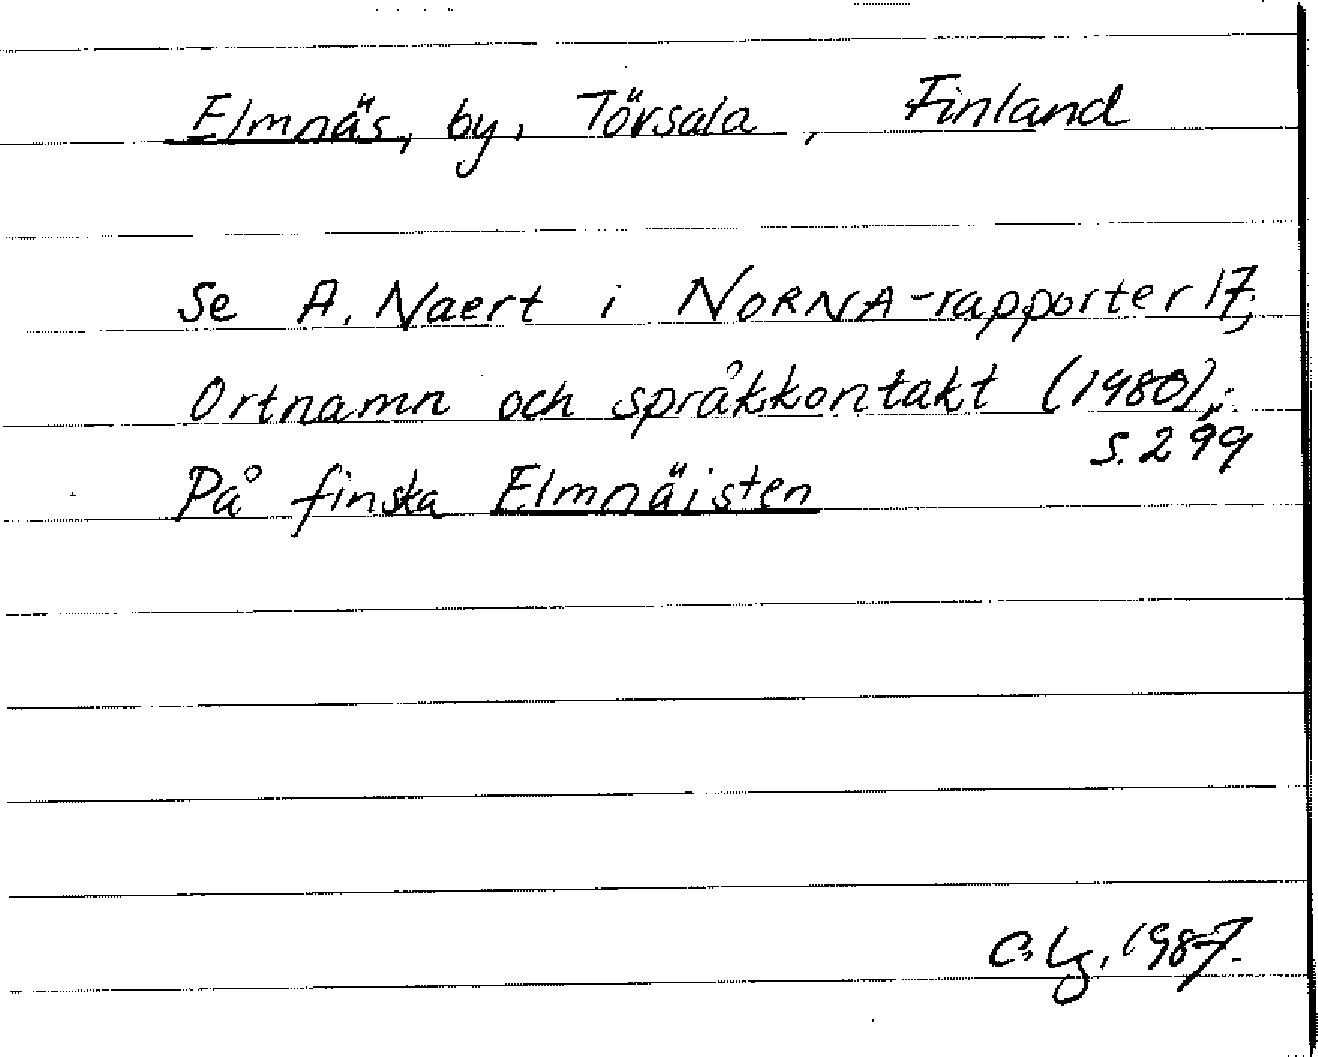 Elmnäs, by, Törsala, Finland
Se A. Naert i NORNA-rapporter 17,
Ortnamn och språkkontakt (1980),
s. 299
På finska Elmnäisten
C. Lg. 1987.